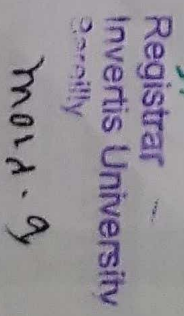 Registrar
Invertis University
Bareilly